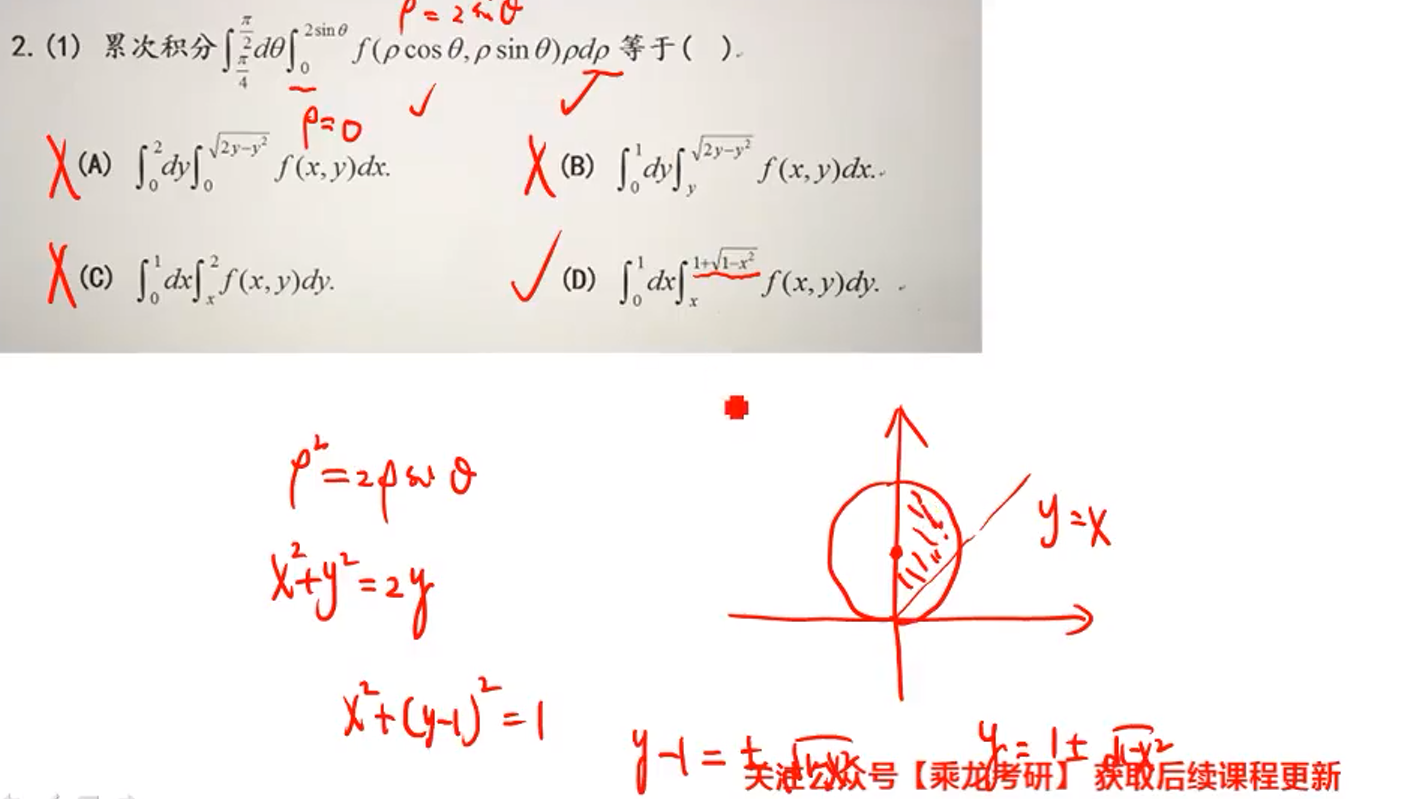 ρ = 2 sin θ
2. (1) 累次积分 ∫_{π/4}^{π/2} dθ ∫_0^{2 sin θ} f(ρ cos θ, ρ sin θ)ρdρ 等于( ).
ρ=0
(A) ∫_0^2 dy ∫_0^{√(2y−y²)} f(x, y)dx.
(B) ∫_0^1 dy ∫_y^{√(2y−y²)} f(x, y)dx.
(C) ∫_0^1 dx ∫_x^2 f(x, y)dy.
(D) ∫_0^1 dx ∫_x^{1+√(1−x²)} f(x, y)dy.
ρ² = 2ρ sin θ
y = x
x² + y² = 2y
x² + (y−1)² = 1
y−1 = ± √(1−x²)
y = 1 ± √(1−x²)
关注公众号【乘龙考研】 获取后续课程更新